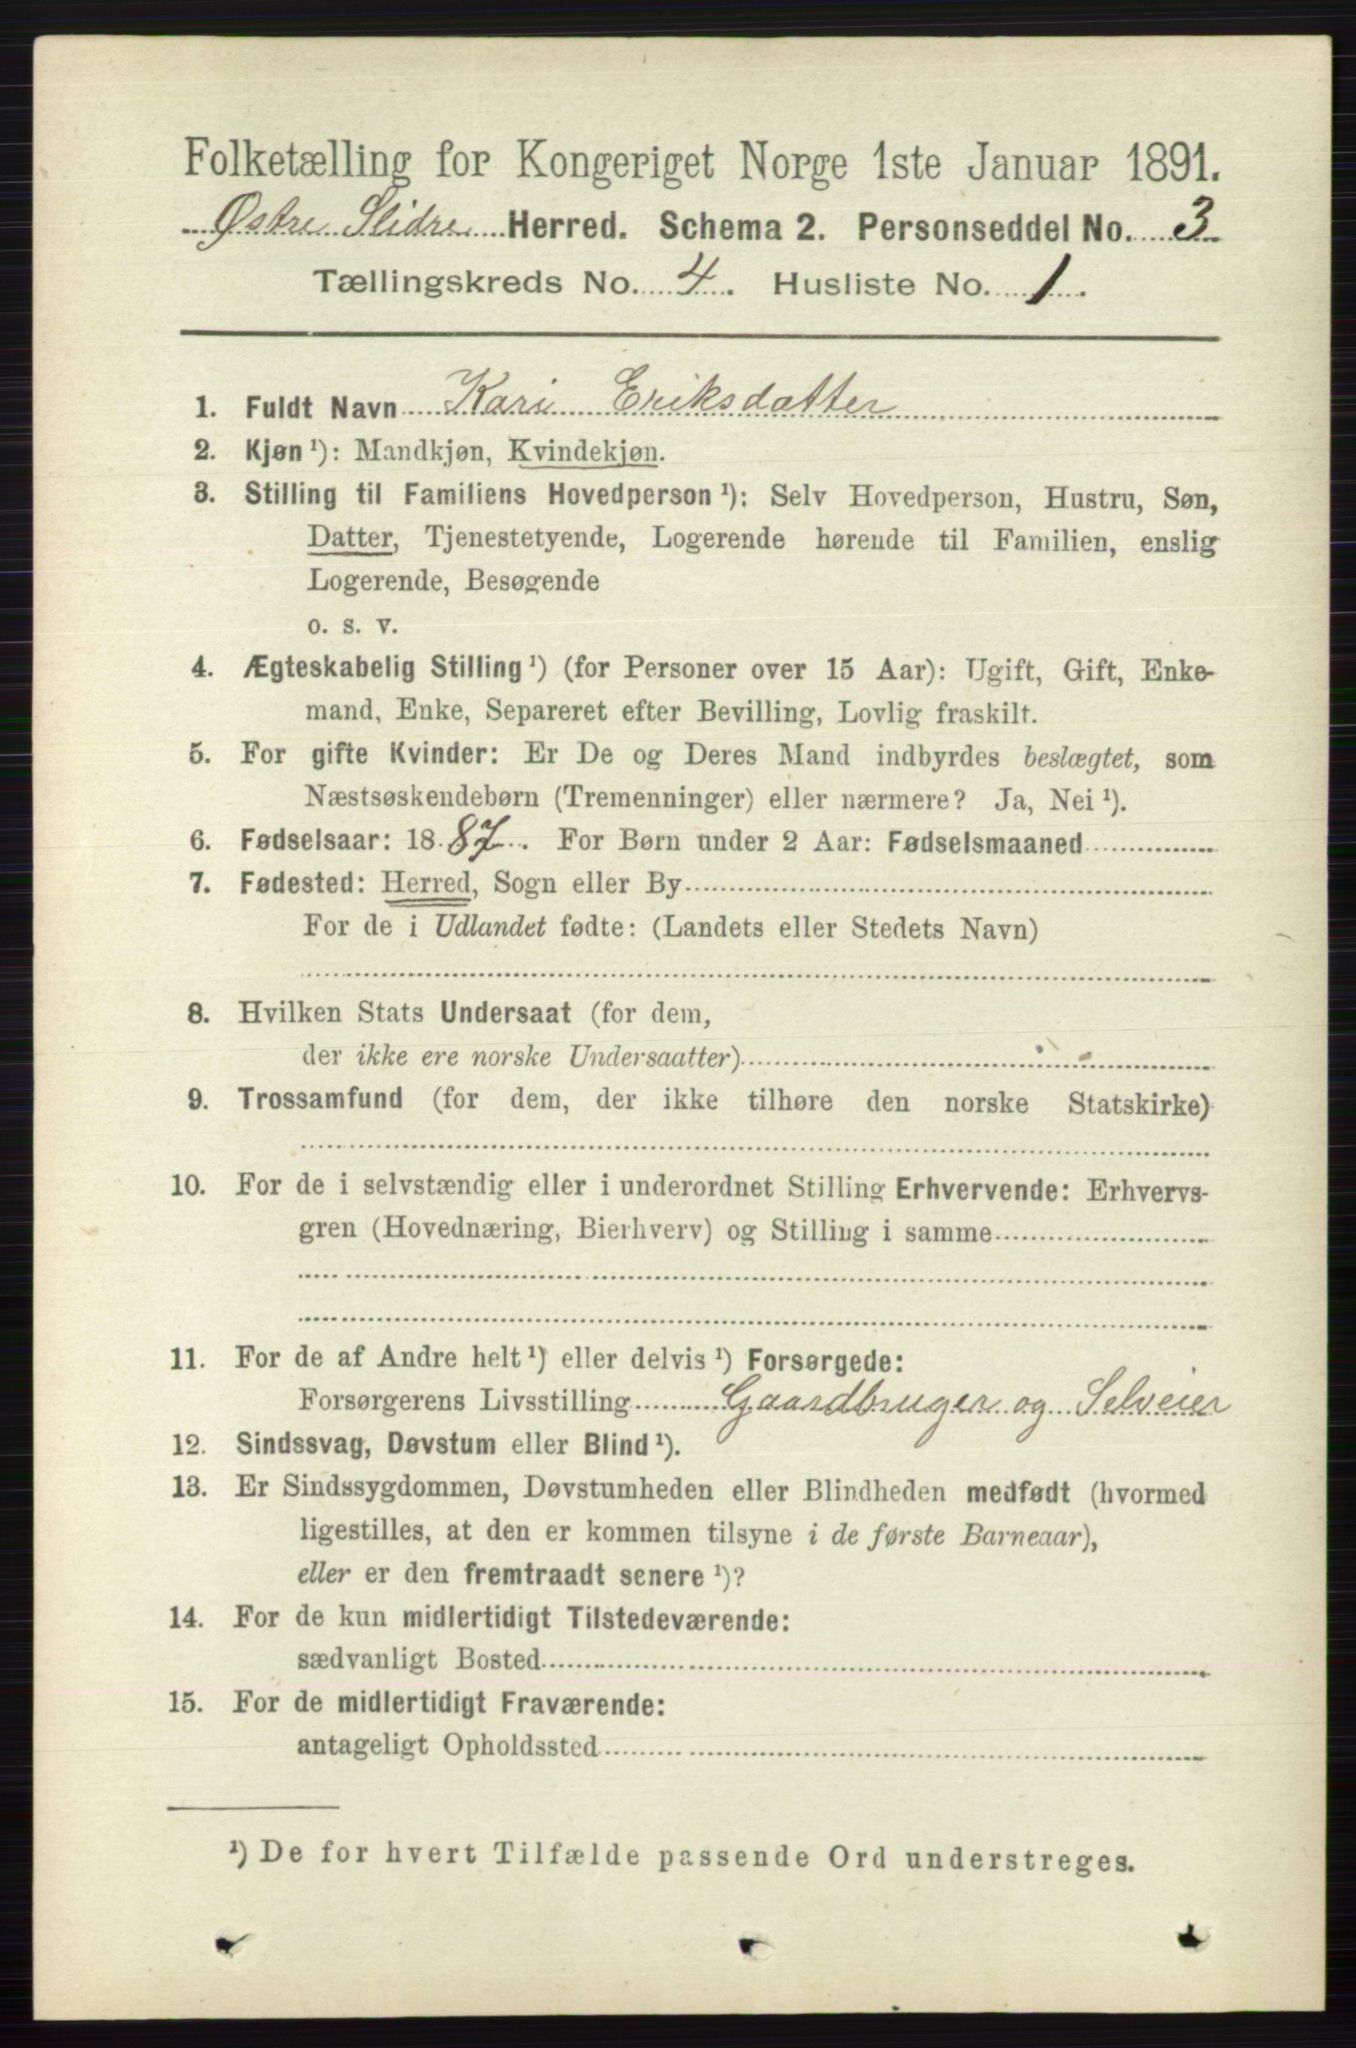 Folketælling for Kongeriget Norge 1ste Januar 1891.
Østre Slidre Herred. Schema 2. Personseddel No. 3
Tællingskreds No. 4. Husliste No. 1.
1. Fuldt Navn Kari Eriksdatter
2. Kjøn ¹): Mandkjøn, Kvindekjøn.
3. Stilling til Familiens Hovedperson ¹): Selv Hovedperson, Hustru, Søn,
Datter, Tjenestetyende, Logerende hørende til Familien, enslig
Logerende, Besøgende
o. s. v.
4. Ægteskabelig Stilling ¹) (for Personer over 15 Aar): Ugift, Gift, Enke-
mand, Enke, Separeret efter Bevilling, Lovlig fraskilt.
5. For gifte Kvinder: Er De og Deres Mand indbyrdes beslægtet, som
Næstsøskendebørn (Tremenninger) eller nærmere? Ja, Nei ¹).
6. Fødselsaar: 1887. For Børn under 2 Aar: Fødselsmaaned
7. Fødested: Herred, Sogn eller By
For de i Udlandet fødte: (Landets eller Stedets Navn)
8. Hvilken Stats Undersaat (for dem,
der ikke ere norske Undersaatter)
9. Trossamfund (for dem, der ikke tilhøre den norske Statskirke)
10. For de i selvstændig eller i underordnet Stilling Erhvervende: Erhvervs-
gren (Hovednæring, Bierhverv) og Stilling i samme
11. For de af Andre helt ¹) eller delvis ¹) Forsørgede:
Forsørgerens Livsstilling Gaardbruger og Selveier
12. Sindssvag, Døvstum eller Blind ¹).
13. Er Sindssygdommen, Døvstumheden eller Blindheden medfødt (hvormed
ligestilles, at den er kommen tilsyne i de første Barneaar),
eller er den fremtraadt senere ¹)?
14. For de kun midlertidigt Tilstedeværende:
sædvanligt Bosted
15. For de midlertidigt Fraværende:
antageligt Opholdssted
¹) De for hvert Tilfælde passende Ord understreges.